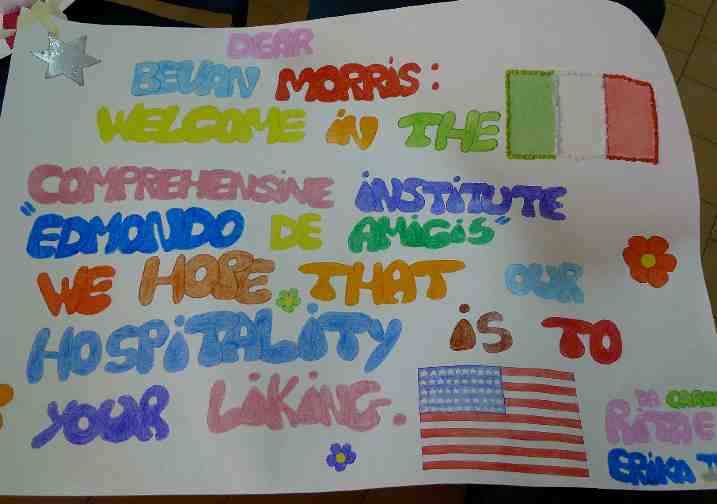 DEAR
BEVAN MORRIS:
WELCOME IN THE
COMPREHENSINE INSTITUTE
"EDMONDO DE AMIGIS"
WE HOPE THAT OUR
HOSPITALITY IS TO
YOUR LIKING.
DA
RITA E
ERIKA